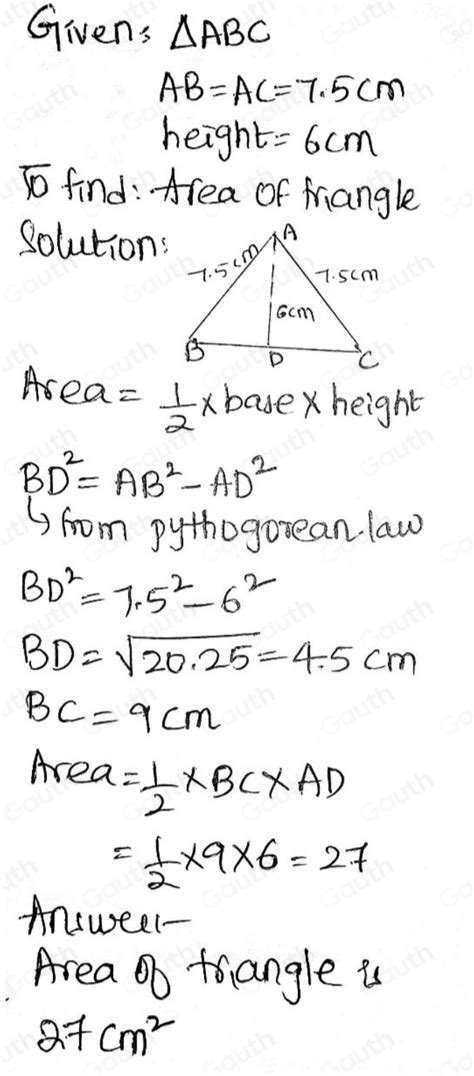 Given: △ABC
AB=AC=7.5cm
height=6cm
To find: Area of triangle
Solution:
A
7.5cm
7.5cm
6cm
B
D
C
Area = 1/2 × base × height
BD² = AB² - AD²
↳ from pythogorean law
BD² = 7.5² - 6²
BD = √20.25 = 4.5 cm
BC = 9 cm
Area = 1/2 × BC × AD
= 1/2 × 9 × 6 = 27
Answer:-
Area of triangle is
27 cm²